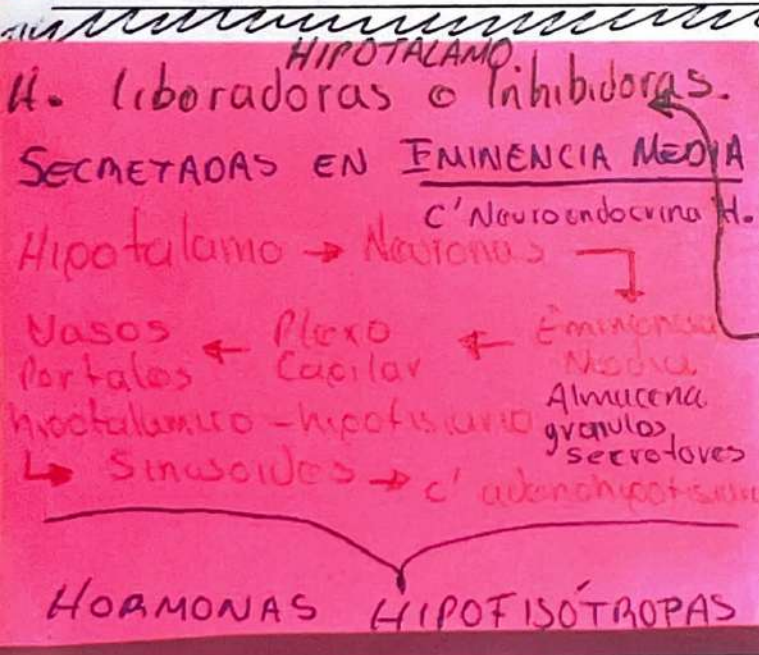 HIPOTALAMO
H. liboradoras o Inhibidoras.
SECRETADAS EN EMINENCIA MEDIA
C' Neuroendocrina H.
Hipotalamo → Neuronas
Vasos Portales ← Plexo Capilar ← Eminencia Media
Almacena
hipotalamico - hipofisiario granulos
secretores
↳ Sinusoides → c' adenohipofisiaria
HORMONAS HIPOFISÓTROPAS